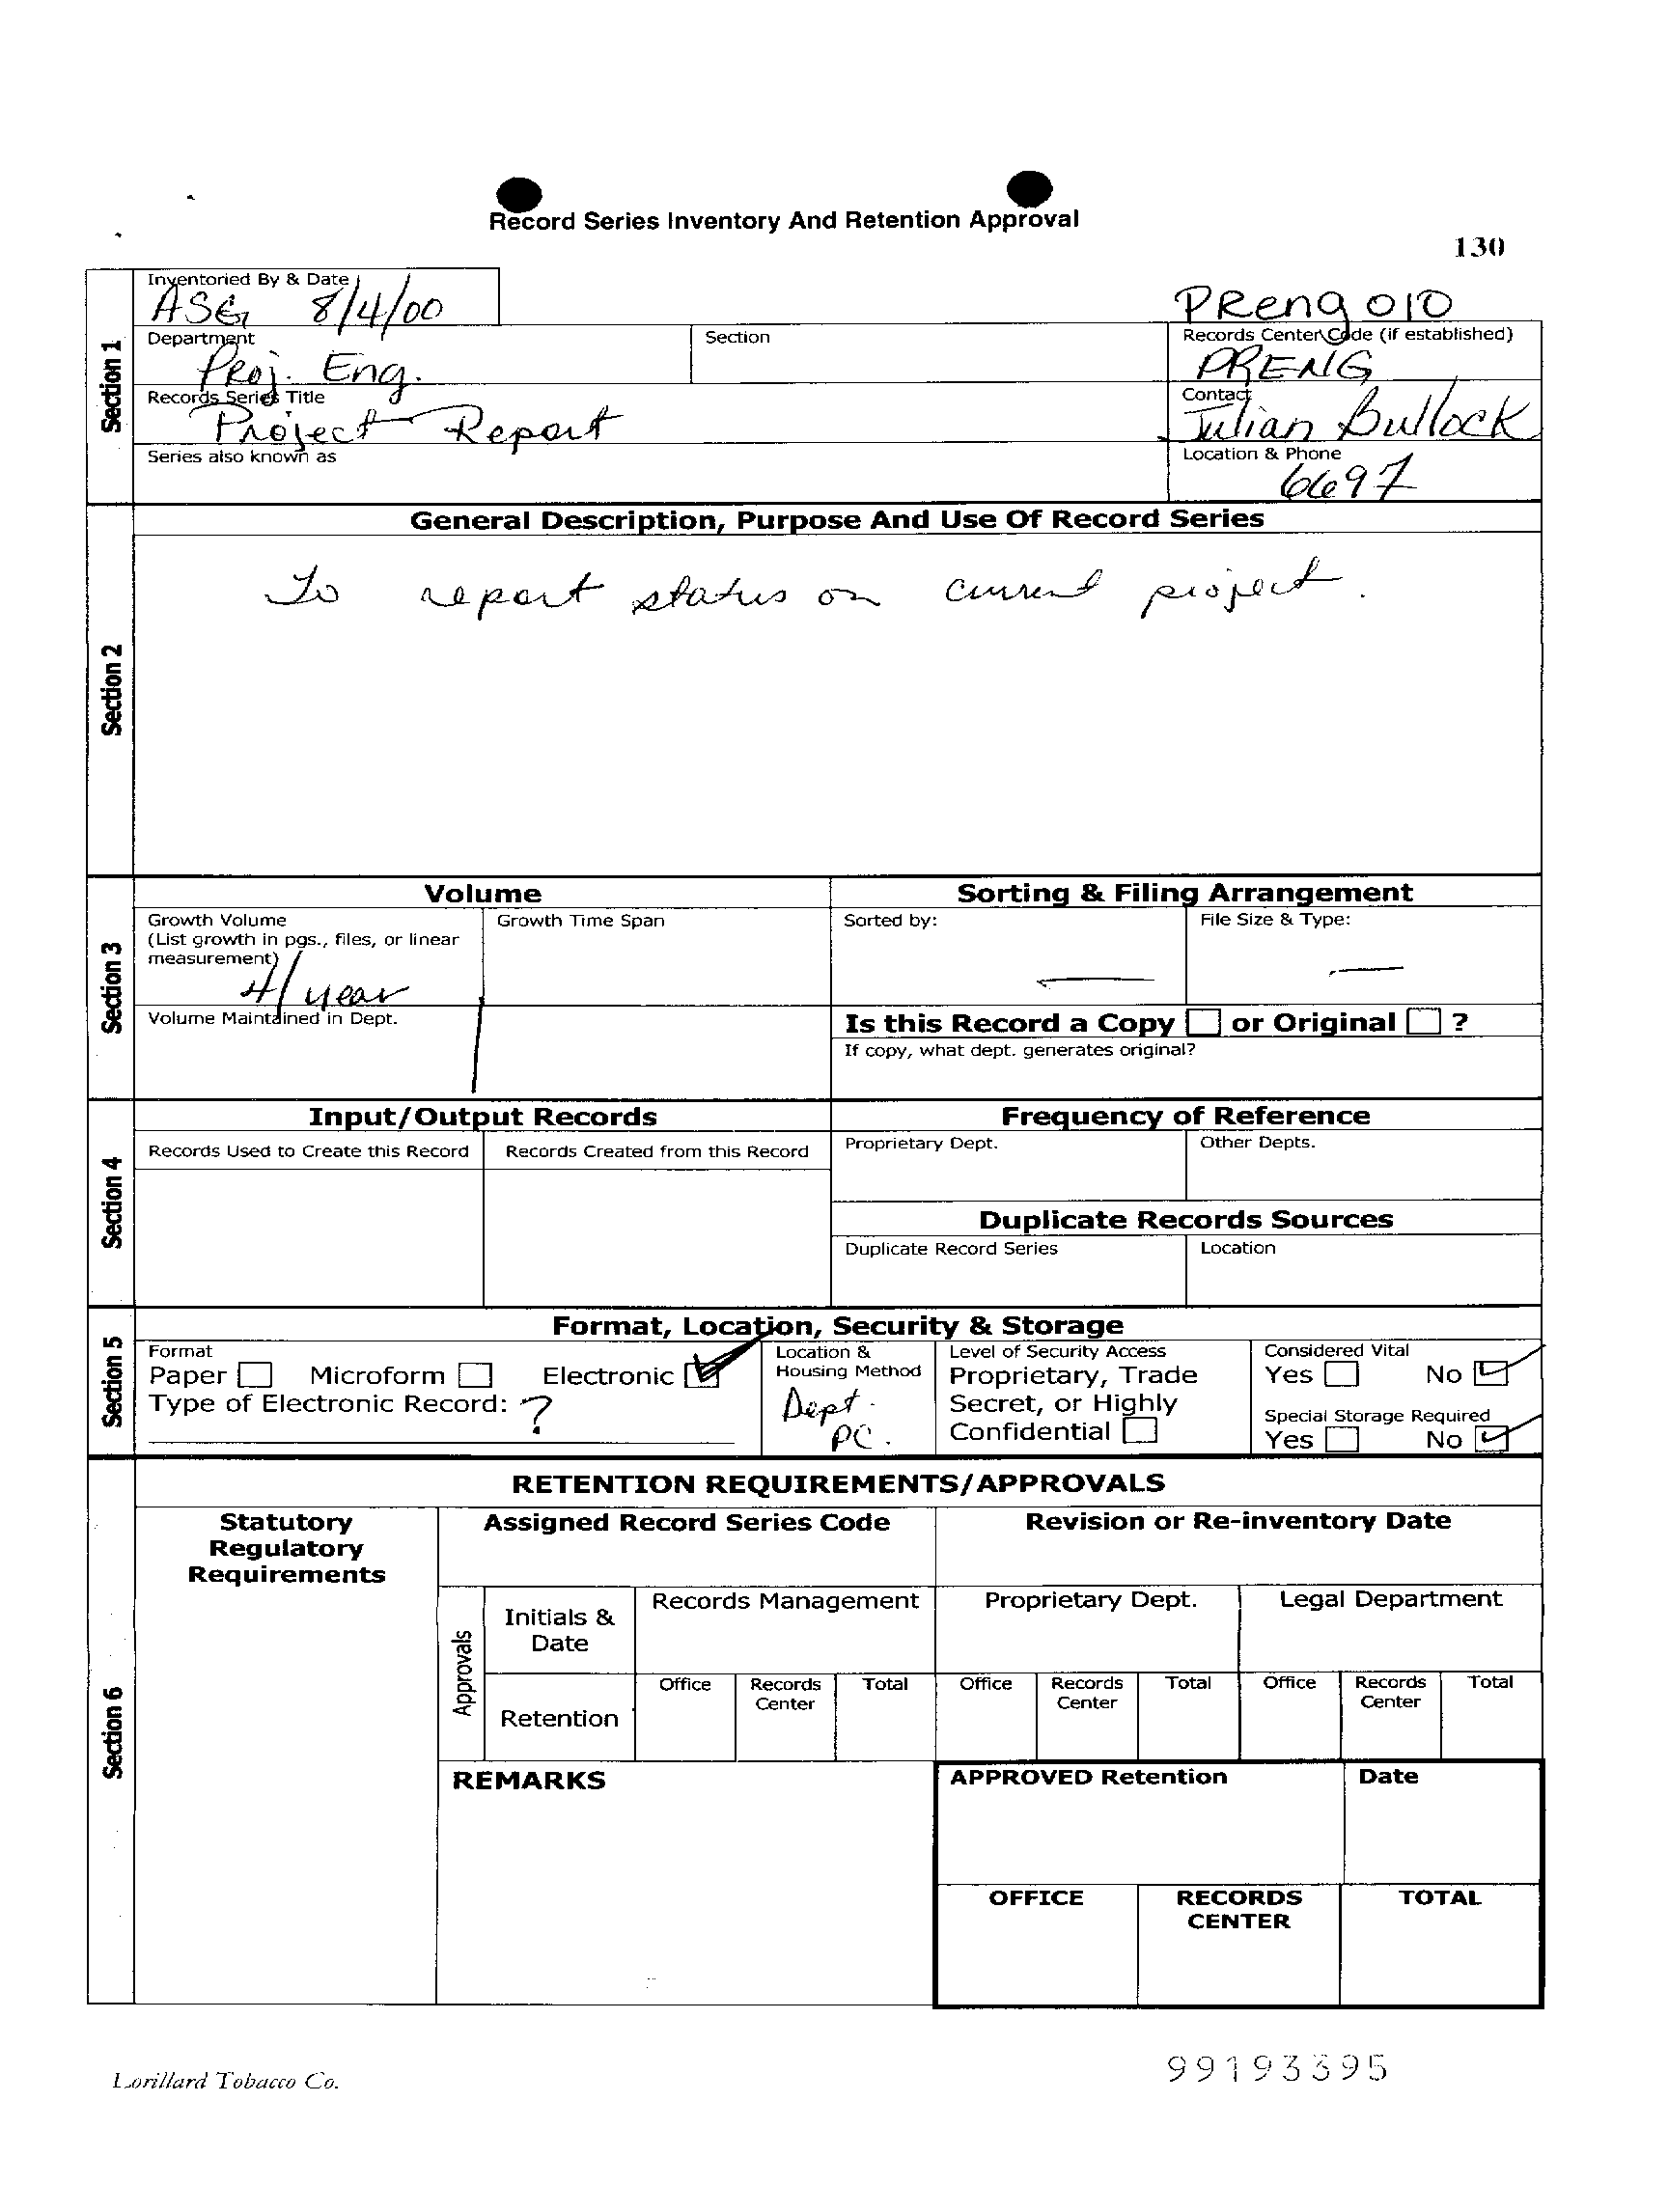 Record Series Inventory And Retention Approval
130
Inventoried By & Date
ASG 8/4/00
PReng 010
Department
Proj. Eng.
Section
Records Center Code (if established)
PRENG
Records Series Title
Project Report
Contact
Julian Bullock
Series also known as
Location & Phone
6697
Section 1
General Description, Purpose And Use Of Record Series
To report status on current project.
Section 2
Volume
Sorting & Filing Arrangement
Growth Volume
(List growth in pgs., files, or linear
measurement)
4/year
Growth Time Span
Sorted by:
—
File Size & Type:
—
Volume Maintained in Dept.
Is this Record a Copy or Original ?
If copy, what dept. generates original?
Section 3
Input/Output Records
Frequency of Reference
Records Used to Create this Record
Records Created from this Record
Proprietary Dept.
Other Depts.
Duplicate Records Sources
Duplicate Record Series
Location
Section 4
Format, Location, Security & Storage
Format
Paper Microform Electronic ✓
Type of Electronic Record: ?
Location &
Housing Method
Dept.
PC.
Level of Security Access
Proprietary, Trade
Secret, or Highly
Confidential
Considered Vital
Yes No ✓
Special Storage Required
Yes No ✓
Section 5
RETENTION REQUIREMENTS/APPROVALS
Statutory
Regulatory
Requirements
Assigned Record Series Code
Revision or Re-inventory Date
Approvals
Initials &
Date
Records Management
Proprietary Dept.
Legal Department
Retention
Office
Records
Center
Total
Office
Records
Center
Total
Office
Records
Center
Total
REMARKS
APPROVED Retention
Date
OFFICE
RECORDS
CENTER
TOTAL
Section 6
Lorillard Tobacco Co.
99193395